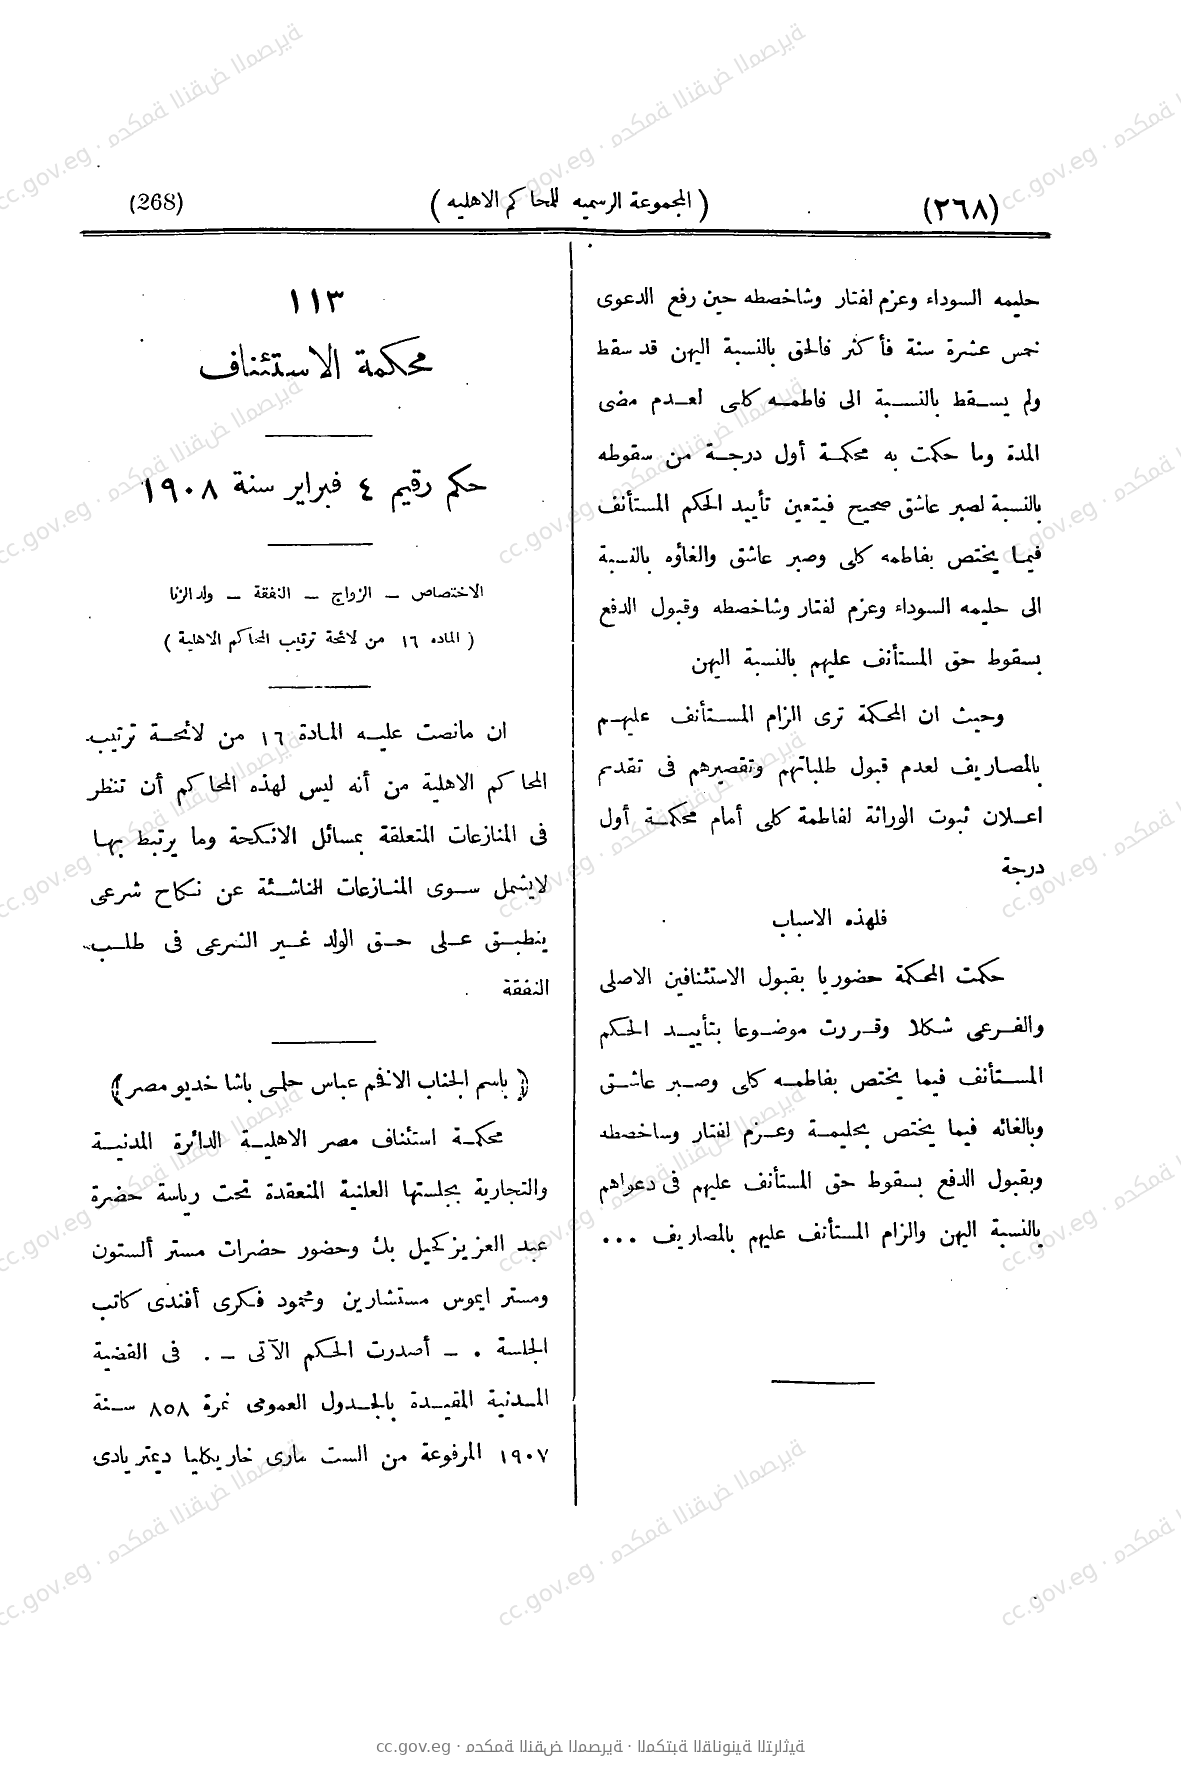 (٢٦٨) ( المجموعة الرسميه للمحاكم الاهليه ) (268)
حليمه السوداء وعزم لفتار وشاخصطه حين رفع الدعوى
خمس عشرة سنة فأكثر فالحق بالنسبة اليهن قد سقط
ولم يسقط بالنسبة الى فاطمه كلى لعدم مضى
المدة وما حكمت به محكمة أول درجة من سقوطه
بالنسبة لصبر عاشق صحيح فيتعين تأييد الحكم المستأنف
فيما يختص بفاطمه كلى وصبر عاشق والغاؤه بالنسبة
الى حليمه السوداء وعزم لفتار وشاخصطه وقبول الدفع
بسقوط حق المستأنف عليهم بالنسبة اليهن
وحيث ان المحكمة ترى الزام المستأنف عليهم
بالمصاريف لعدم قبول طلباتهم وتقصيرهم فى تقديم
اعلان ثبوت الوراثة لفاطمة كلى أمام محكمة أول
درجة
فلهذه الاسباب
حكمت المحكمة حضوريا بقبول الاستئنافين الاصلى
والفرعى شكلا وقررت موضوعا بتأييد الحكم
المستأنف فيما يختص بفاطمه كلى وصبر عاشق
وبالغائه فيما يختص بحليمة وعزم لفتار وساخصطه
وبقبول الدفع بسقوط حق المستأنف عليهم فى دعواهم
بالنسبة اليهن والزام المستأنف عليهم بالمصاريف ...
١١٣
محكمة الاستئناف
حكم رقيم ٤ فبراير سنة ١٩٠٨
الاختصاص – الزواج – النفقة – ولد الزنا
( الماده ١٦ من لائحة ترتيب المحاكم الاهلية )
ان مانصت عليه المادة ١٦ من لائحة ترتيب
المحاكم الاهلية من أنه ليس لهذه المحاكم أن تنظر
فى المنازعات المتعلقة بمسائل الانكحة وما يرتبط بها
لايشمل سوى المنازعات الناشئة عن نكاح شرعى
ينطبق على حق الولد غير الشرعى فى طلب
النفقة
﴿ باسم الجناب الافخم عباس حلمى باشا خديو مصر ﴾
محكمة استئناف مصر الاهلية الدائرة المدنية
والتجارية بجلستها العلنية المنعقدة تحت رياسة حضرة
عبد العزيز كحيل بك وحضور حضرات مستر ألستون
ومستر ايموس مستشارين ومحمود فكرى أفندى كاتب
الجلسة . – أصدرت الحكم الآتى – . فى القضية
المدنية المقيدة بالجدول العمومى نمرة ٨٥٨ سنة
١٩٠٧ المرفوعة من الست مارى خاريكليا ديمتريادى
cc.gov.eg · محكمة النقض المصرية · المكتبة القانونية التراثية